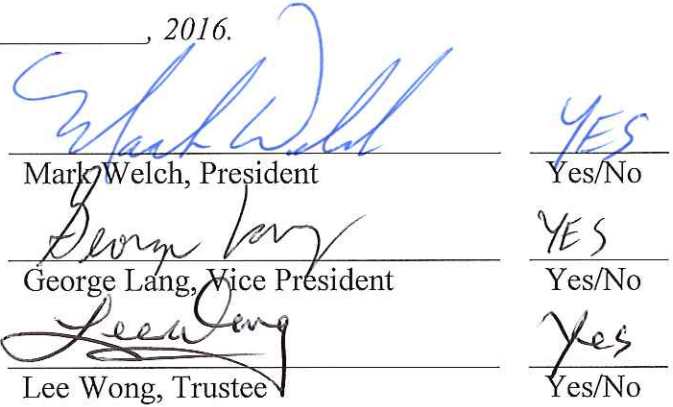 , 2016.
Mark Welch YES
Mark Welch, President Yes/No
George Lang YES
George Lang, Vice President Yes/No
Lee Wong Yes
Lee Wong, Trustee Yes/No